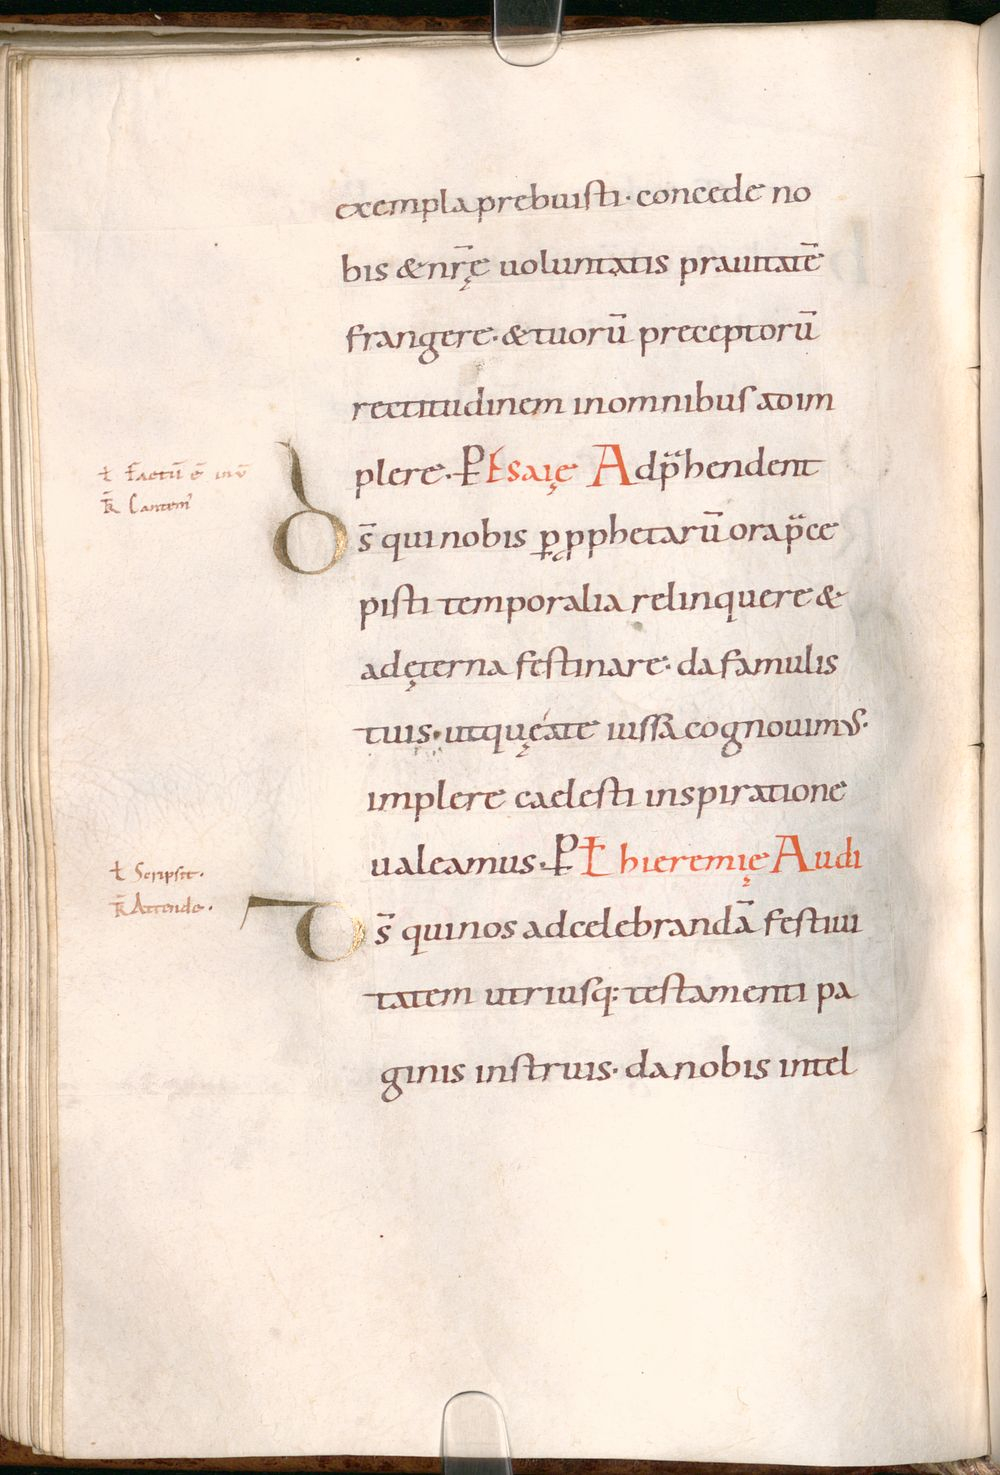 exempla prebuisti · concede no
bis & nr̄ę uoluntatis prauitatē
frangere · & tuorū preceptorū
rectitudinem in omnibus adim
plere · P̄ Esaię Adp̄hendent
D s̄ qui nobis ꝑ ꝓphetarū ora p̄ce
pisti temporalia relinquere &
ad ęterna festinare · da famulis
tuis · ut quę a te iussa cognouimus ·
implere caelesti inspiratione
ualeamus · P̄ Ł hieremię Audi
D s̄ qui nos ad celebrandā festiui
tatem utriusq: testamenti pa
ginis instruis · da nobis intel
ł Factū ē in
R̄ Cantem'
ł Scripsit ·
R̄ Attende ·